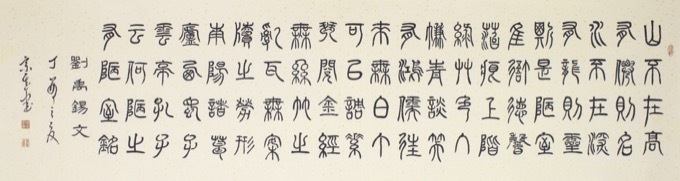 山不在高
有僊則名
水不在深
有龍則靈
斯是陋室
惟吾德馨
苔痕上階
綠艸色入
簾青談笑
有鴻儒往
來無白丁
可㠯調素
琴閱金經
無絲竹之
亂耳無案
牘之勞形
南陽諸葛
廬西蜀子
雲亭孔子
云何陋之
有陋室銘
劉禹錫文
丁亥之夏